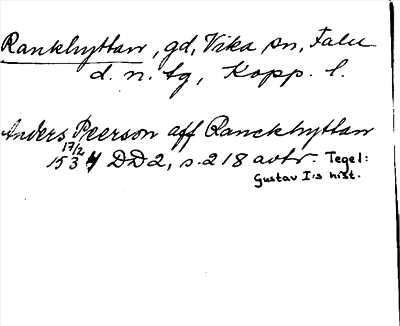 Rankhyttan, gd, Vika sn, Falu
d. n. tg, Kopp. l.
Anders Peerson aff Ranckhyttan
17/2 1534 DD2, s. 218 avtr. Tegel:
Gustav I:s hist.